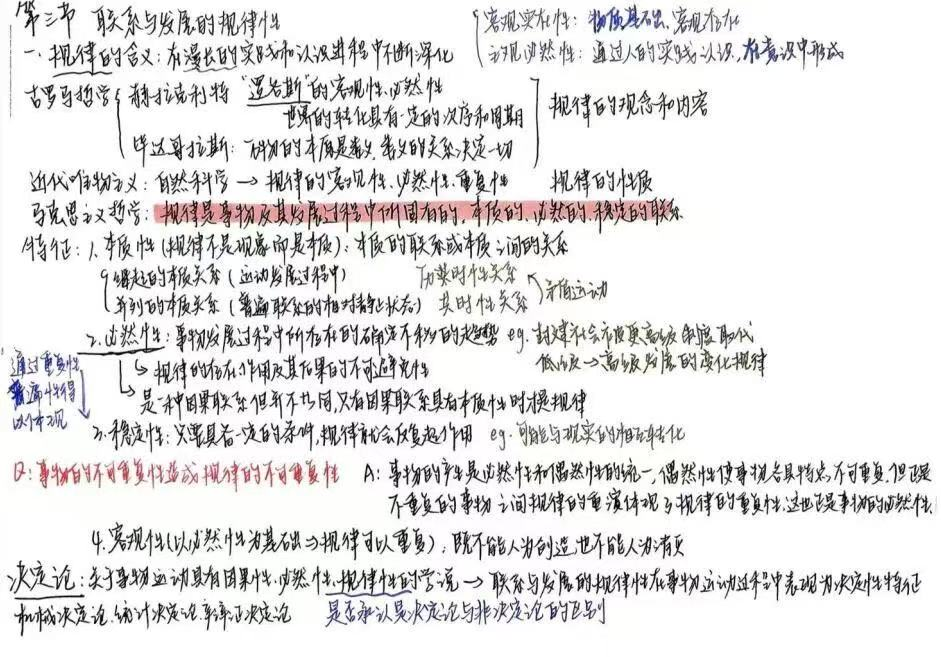 第三节 联系与发展的规律性
客观实在性：物质基础、客观存在
一、规律的含义：在漫长的实践和认识进程中不断深化
主观必然性：通过人的实践认识，在意识中形成
古罗马哲学 赫拉克利特 “逻各斯”的客观性、必然性
世界的转化具有一定的次序和周期
规律的观念和内容
毕达哥拉斯：万物的本原是数，数的关系决定一切
近代唯物主义：自然科学 → 规律的客观性、必然性、重复性 规律的性质
马克思主义哲学：规律是事物及其发展过程中所固有的，本质的、必然的、稳定的联系
特征：1. 本质性（规律不是现象而是本质）：本质的联系或本质之间的关系
继起的本质关系（运动发展过程中） 历时性关系
矛盾运动
并列的本质关系（普遍联系的相对静止状态） 共时性关系
2. 必然性：事物发展过程中所存在的确定不移的趋势 eg. 封建社会市度更高级制度取代
低级→高级发展的变化规律
通过重复性
普遍性得
以体现
↳ 规律的存在、作用及其后果的不可避免性
↳ 是一种因果联系但并不共同，只有因果联系具有本质性时才是规律
3. 稳定性：只要具备一定的条件，规律就会反复起作用 eg. 可能与现实的相互转化
Q：事物的不可重复性造成规律的不可重复性
A：事物的产生是必然性和偶然性的统一，偶然性使事物各具特点，不可重复，但正是
不重复的事物之间规律的重演体现了规律的重复性，这也正是事物的必然性.
4. 客观性（以必然性为基础⇒规律可以重复）：既不能人为创造也不能人为消灭
决定论：关于事物运动具有因果性、必然性、规律性的学说 → 联系与发展的规律性在事物运动过程中表现为决定性特征
机械决定论、统计决定论、辩证决定论 是否承认是决定论与非决定论的区别